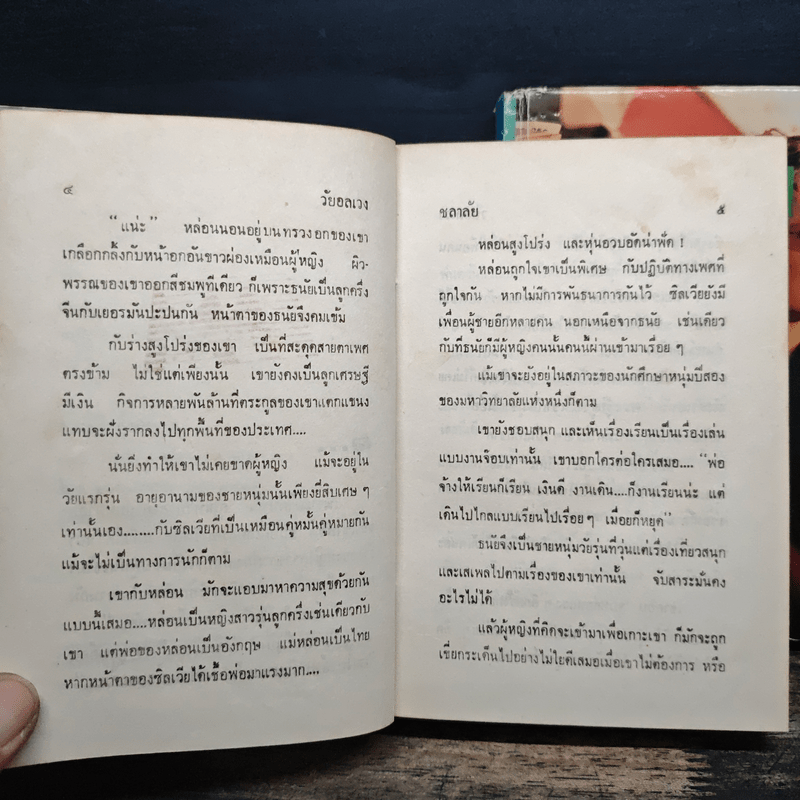 ๔ วัยอลเวง
“แน่ะ” หล่อนนอนอยู่บนทรวงอกของเขา
เกลือกกลั้งกับหน้าอกอันขาวผ่องเหมือนผู้หญิง ผิว-
พรรณของเขาออกสีชมพูทีเดียว ก็เพราะธนัยเป็นลูกครึ่ง
จีนกับเยอรมันปะปนกัน หน้าตาของธนัยจึงคมเข้ม
กับร่างสูงโปร่งของเขา เป็นที่สะดุดสายตาเพศ
ตรงข้าม ไม่ใช่แต่เพียงนั้น เขายังคงเป็นลูกเศรษฐี
มีเงิน กิจการหลายพันล้านที่ตระกูลของเขาแตกแขนง
แทบจะฝั่งรากลงไปทุกพื้นที่ของประเทศ....
นั่นยิ่งทำให้เขาไม่เคยขาดผู้หญิง แม้จะอยู่ใน
วัยแรกรุ่น อายุอานามของชายหนุ่มนั้นเพียงยี่สิบเศษ ๆ
เท่านั้นเอง........กับซิลเวียที่เป็นเหมือนคู่หมั้นคู่หมายกัน
แม้จะไม่เป็นทางการนักก็ตาม
เขากับหล่อน มักจะแอบมาหาความสุขด้วยกัน
แบบนี้เสมอ....หล่อนเป็นหญิงสาวรุ่นลูกครึ่งเช่นเดียวกับ
เขา แต่พ่อของหล่อนเป็นอังกฤษ แม่หล่อนเป็นไทย
หากหน้าตาของซิลเวียได้เชื้อพ่อมาแรงมาก....
ชลาลัย ๕
หล่อนสูงโปร่ง และหุ่นอวบอัดน่าฟัด !
หล่อนถูกใจเขาเป็นพิเศษ กับปฏิบัติทางเพศที่
ถูกใจกัน หากไม่มีการพันธนาการกันไว้ ซิลเวียยังมี
เพื่อนผู้ชายอีกหลายคน นอกเหนือจากธนัย เช่นเดียว
กับที่ธนัยก็มีผู้หญิงคนนั้นคนนี้ผ่านเข้ามาเรื่อย ๆ
แม้เขาจะยังอยู่ในสภาวะของนักศึกษาหนุ่มปีสอง
ของมหาวิทยาลัยแห่งหนึ่งก็ตาม
เขายังชอบสนุก และเห็นเรื่องเรียนเป็นเรื่องเล่น
แบบงานจ๊อบเท่านั้น เขาบอกใครต่อใครเสมอ.... “พ่อ
จ้างให้เรียนก็เรียน เงินดี งานเดิน....ก็งานเรียนน่ะ แต่
เดินไปไกลแบบเรียนไปเรื่อย ๆ เมื่อยก็หยุด”
ธนัยจึงเป็นชายหนุ่มวัยรุ่นที่วุ่นแต่เรื่องเที่ยวสนุก
และเสเพลไปตามเรื่องของเขาเท่านั้น จับสาระมั่นคง
อะไรไม่ได้
แล้วผู้หญิงที่คิดจะเข้ามาเพื่อเกาะเขา ก็มักจะถูก
เขี่ยกระเด็นไปอย่างไม่ไยดีเสมอเมื่อเขาไม่ต้องการ หรือ